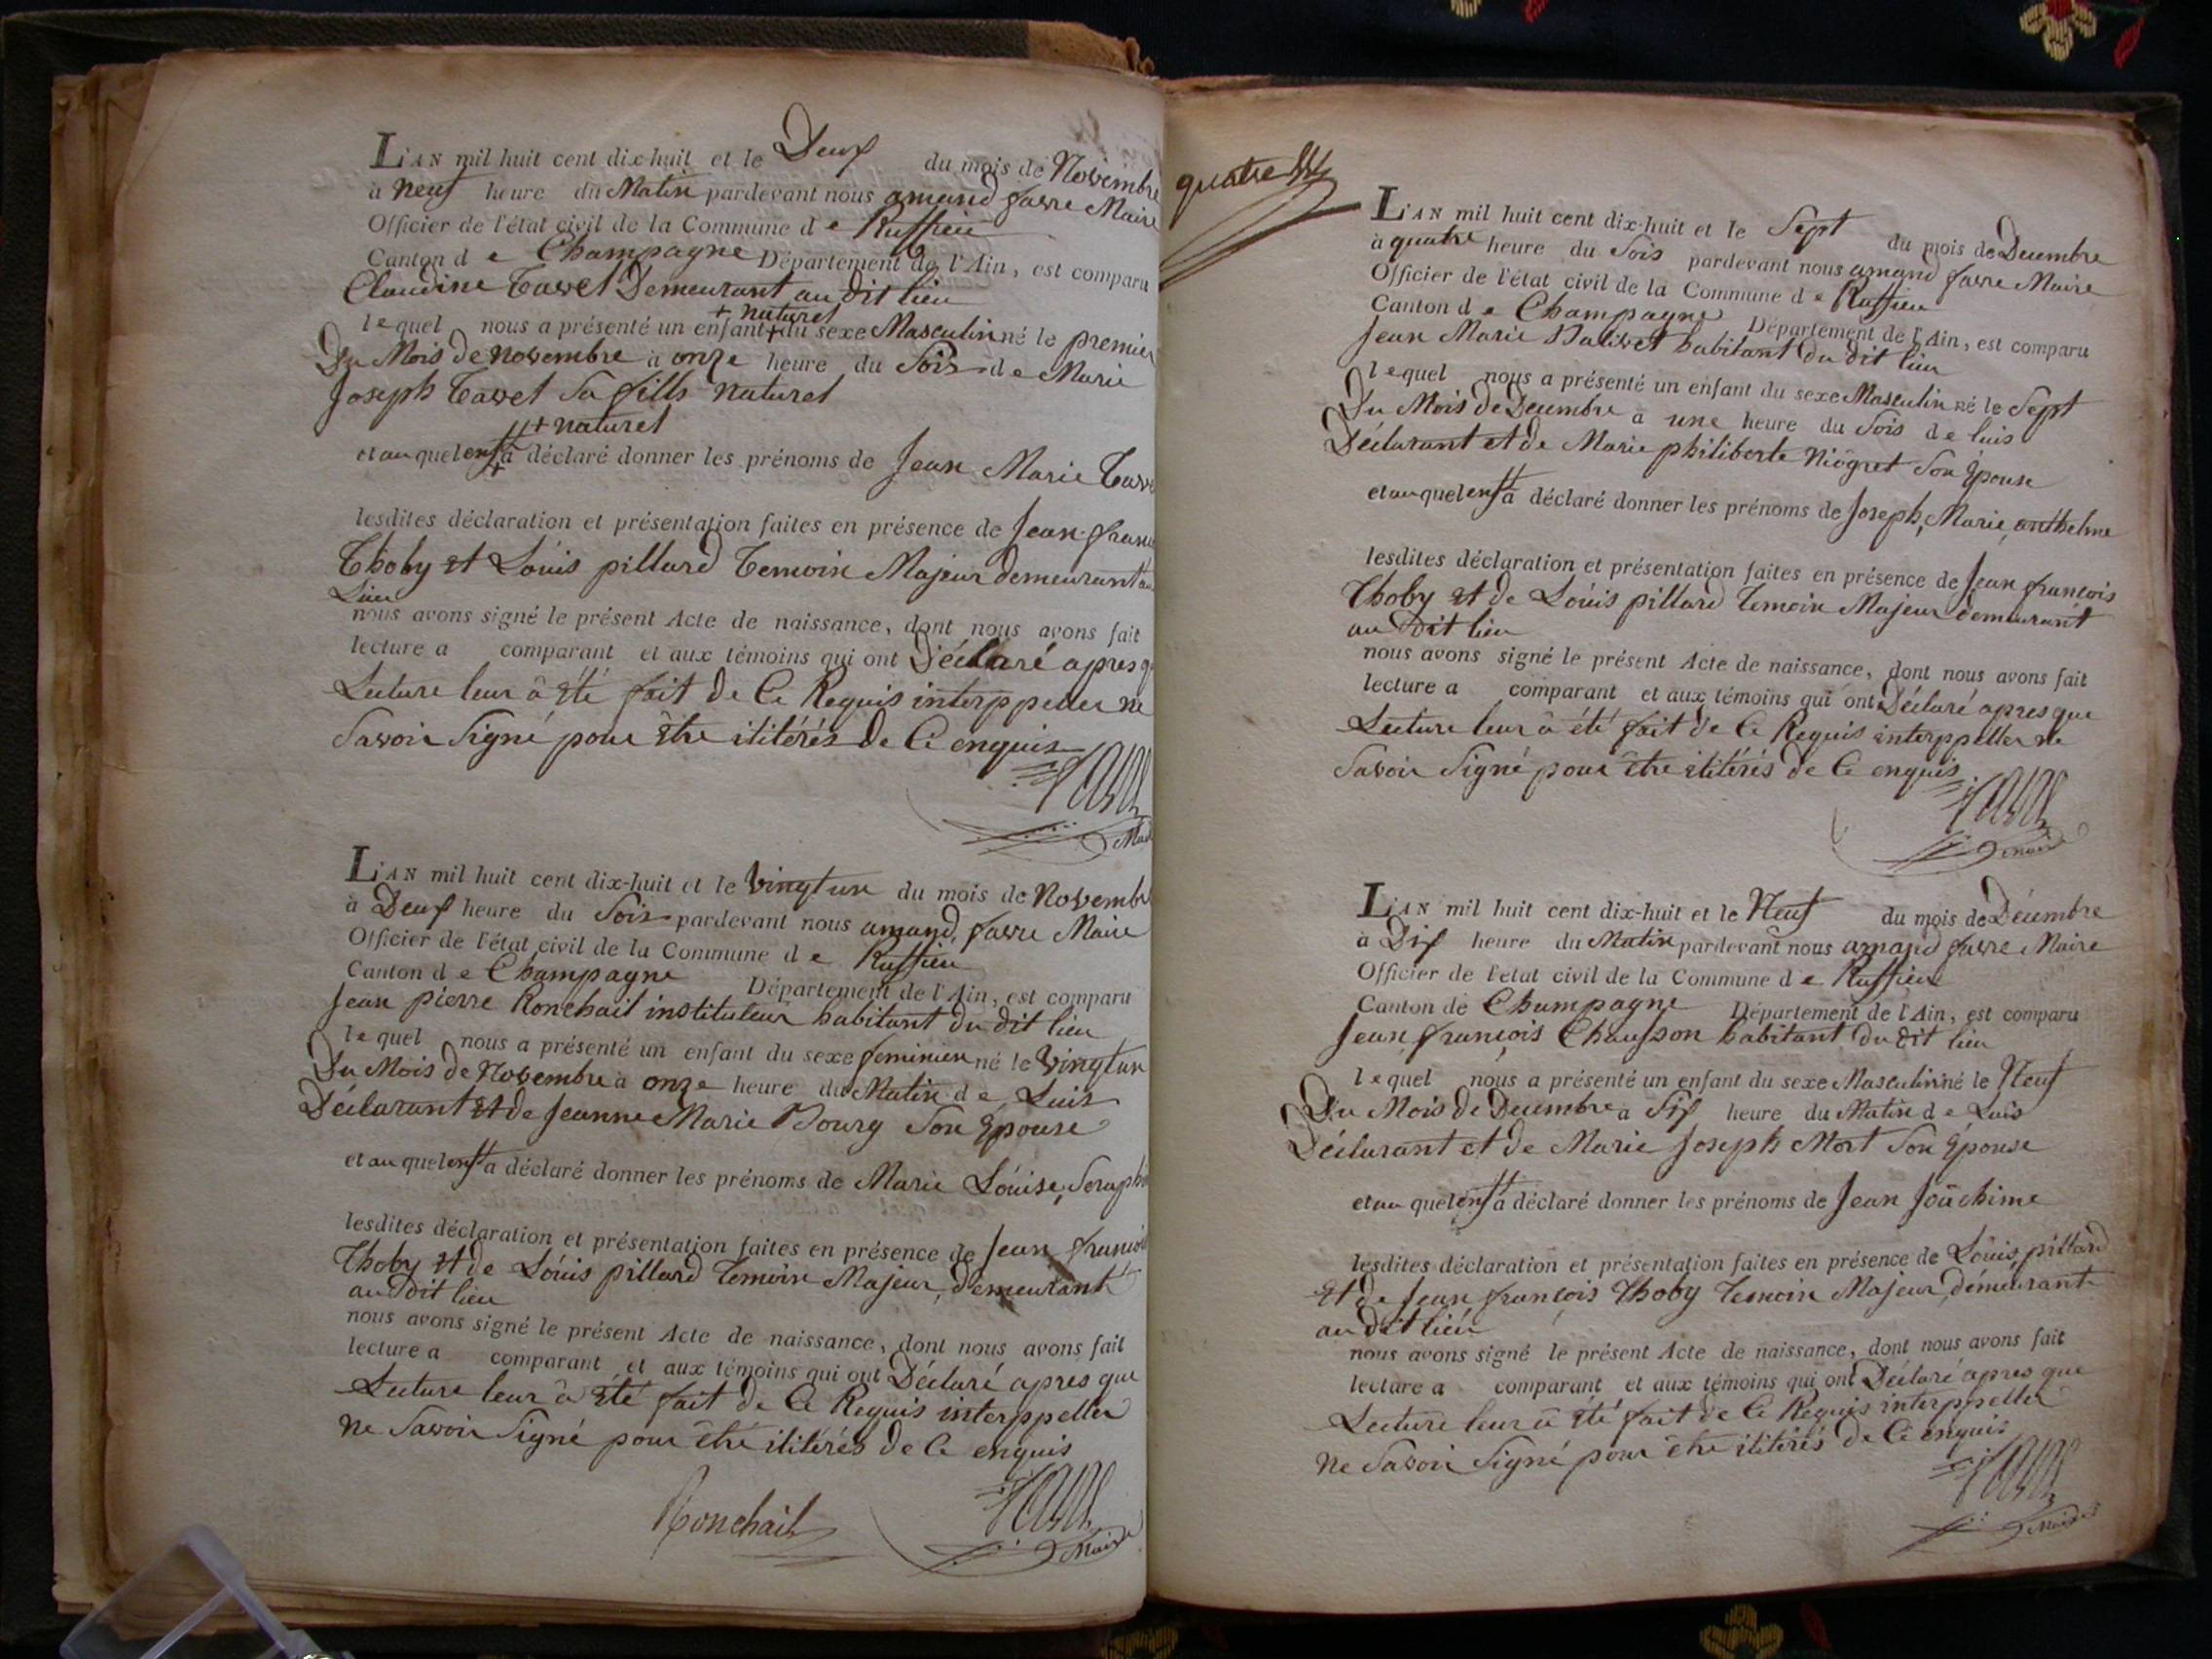 L'AN mil huit cent dix-huit et le Deux du mois de Novembre
à neuf heure du Matin pardevant nous amand favre Maire
Officier de l'état civil de la Commune d e Ruffieu
Canton d e Champagne Département de l'Ain, est comparu
Claudine Tavel Demeurant au dit lieu
+ naturel
lequel nous a présenté un enfant + du sexe Masculin né le premier
Du Mois de novembre à onze heure du Soir d e Marie
Joseph Tavel Sa fille naturel
+ naturel
et au quel enft a déclaré donner les prénoms de Jean Marie
lesdites déclaration et présentation faites en présence de Jean
Thoby et Loüis pillard Temoin Majeur demeurant au
Lieu
nous avons signé le présent Acte de naissance, dont nous avons fait
lecture a comparant et aux témoins qui ont Déclaré apres
Lecture leur â été fait de Ce Requis interppeller ne
Savoir Signé pour être ilitérés de Ce enquis
favre
L'AN mil huit cent dix-huit et le vingt un du mois de Novembre
à Deux heure du Soir pardevant nous amand favre Maire
Officier de l'état civil de la Commune d e Ruffieu
Canton d e Champagne Département de l'Ain, est comparu
Jean pierre Ronchail instituteur habitant du dit lieu
lequel nous a présenté un enfant du sexe feminien né le vingt un
Du Mois de Novembre à onze heure du Matin d e Luis
Déclarant et de Jeanne Marie Bourg Son Epouse
et au quel enft a déclaré donner les prénoms de Marie Loüise
lesdites déclaration et présentation faites en présence de Jean françois
Thoby et de Loüis pillard Temoin Majeur demeurant
au dit lieu
nous avons signé le présent Acte de naissance, dont nous avons fait
lecture a comparant et aux témoins qui ont Déclaré apres que
Lecture leur â été fait de Ce Requis interppeller
ne Savoir Signé pour être ilitérés de Ce enquis
Ronchail favre
Maire
quatre
L'AN mil huit cent dix-huit et le Sept du mois de Decembre
à quatre heure du Soir pardevant nous amand favre Maire
Officier de l'état civil de la Commune d e Ruffieu
Canton d e Champagne Département de l'Ain, est comparu
Jean Marie Balivet habitant du dit lieu
lequel nous a présenté un enfant du sexe Masculin né le Sept
Du Mois de Decembre à une heure du Soir d e luis
Déclarant et de Marie philiberte Niogret Son Epouse
et au quel enft a déclaré donner les prénoms de Joseph, Marie, anthelme
lesdites déclaration et présentation faites en présence de Jean françois
Thoby et de Loüis pillard Temoin Majeur demeurant
au dit lieu
nous avons signé le présent Acte de naissance, dont nous avons fait
lecture a comparant et aux témoins qui ont Déclaré apres que
Lecture leur â été fait de Ce Requis interppeller ne
Savoir Signé pour être ilitérés de Ce enquis
favre
maire
L'AN mil huit cent dix-huit et le Neuf du mois de Décembre
à Dix heure du Matin pardevant nous amand favre Maire
Officier de l'etat civil de la Commune d e Ruffieu
Canton de Champagne Département de l'Ain, est comparu
Jean françois Chausson habitant du dit lieu
lequel nous a présenté un enfant du sexe Masculin né le Neuf
Du Mois de Decembre à Six heure du Matin d e Luis
Déclarant et de Marie Joseph Mort Son Epouse
et au quel enft a déclaré donner les prénoms de Jean Joâchime
lesdites déclaration et présentation faites en présence de Loüis pillard
Et de Jean françois Thoby Temoin Majeur démeurant
au dit lieu
nous avons signé le présent Acte de naissance, dont nous avons fait
lecture a comparant et aux témoins qui ont Déclaré apres que
Lecture leur â été fait de Ce Requis interppeller
ne Savoir Signé pour être ilitérés de Ce enquis
favre
Maire